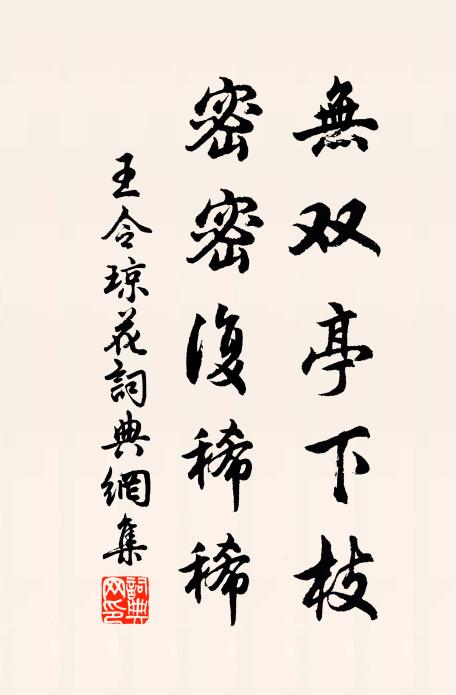 無双亭下枝
密密復稀稀
王令琼花詞典網集
詞典
网印